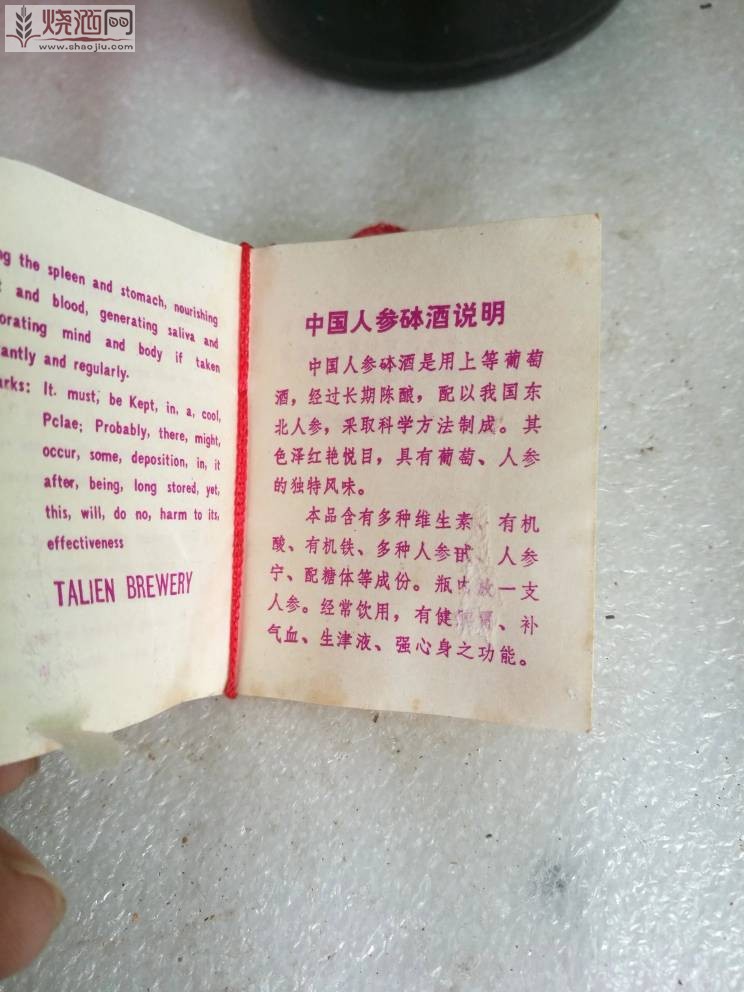 烧酒网
www.shaojiu.com
the spleen and stomach, nourishing
and blood, generating saliva and
mind and body if taken
and regularly.
It. must, be Kept, in, a, cool,
Pclae; Probably, there, might,
occur, some, deposition, in, it
after, being, long stored, yet,
this, will, do no, harm to its,
effectiveness
TALIEN BREWERY
中国人参砵酒说明
中国人参砵酒是用上等葡萄
酒，经过长期陈酿，配以我国东
北人参，采取科学方法制成。其
色泽红艳悦目，具有葡萄、人参
的独特风味。
本品含有多种维生素、有机
酸、有机铁、多种人参 人参
宁、配糖体等成份。瓶 一支
人参。经常饮用，有健 、补
气血、生津液、强心身之功能。